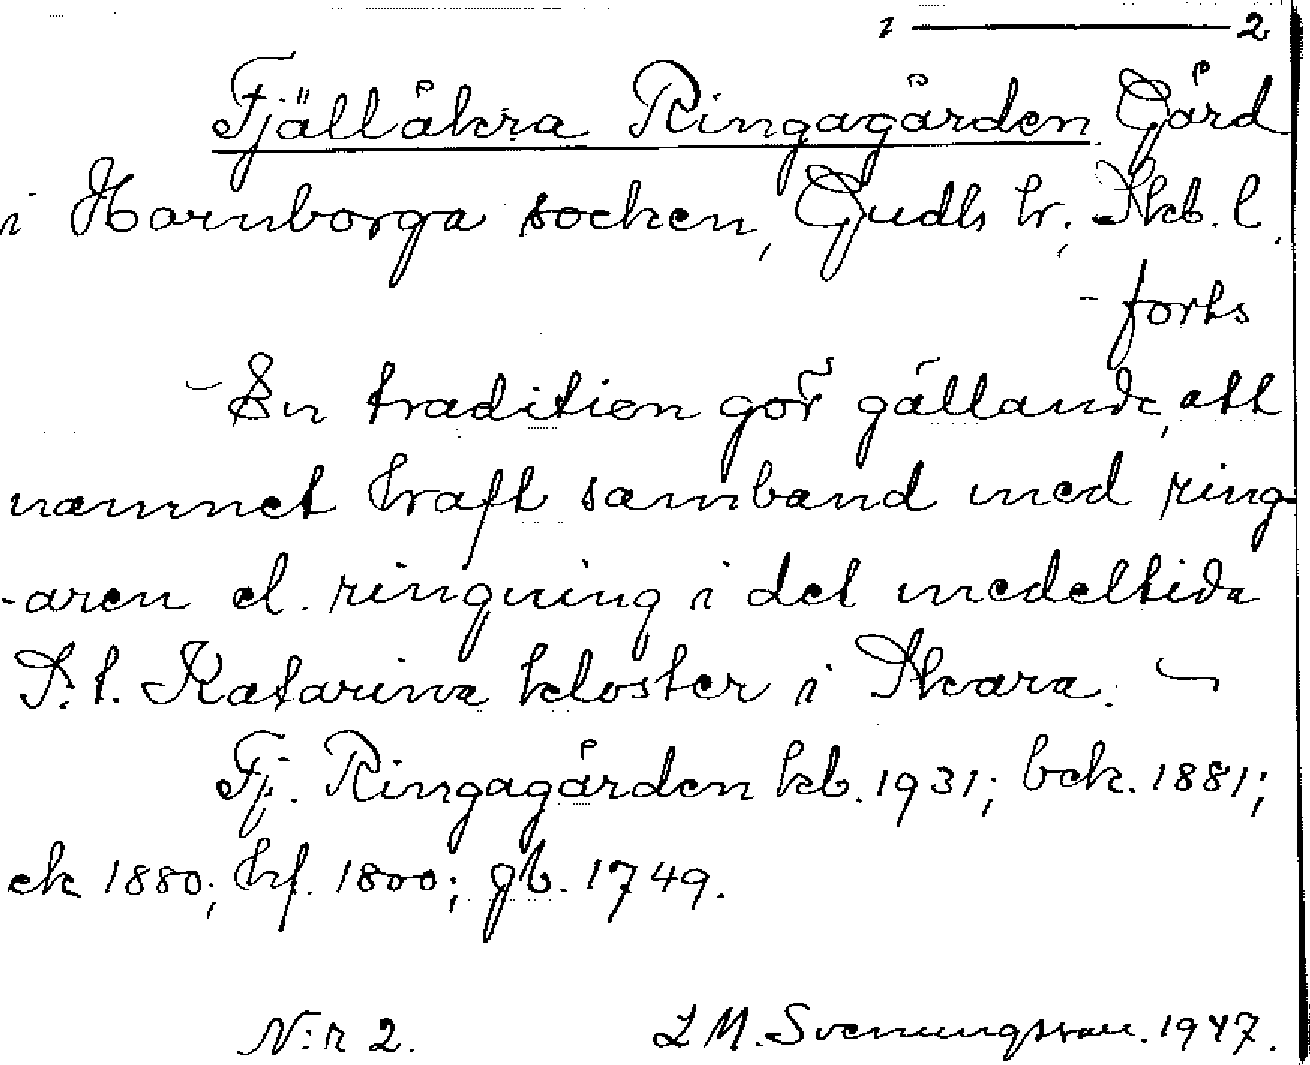 1 ——— 2
Fjällåkra Ringagården Gård
i Hornborga socken, Gudh hr; Skb. l.
- forts
- En tradition gör gällande, att
namnet haft samband med ring-
-aren el. ringning i det medeltida
S:t. Katarina kloster i Skara. -
Fj. Ringagården kb. 1931; bck. 1881;
ek 1880; hf. 1800; gb. 1749.
N:r 2. L M. Svenungsson. 1947.